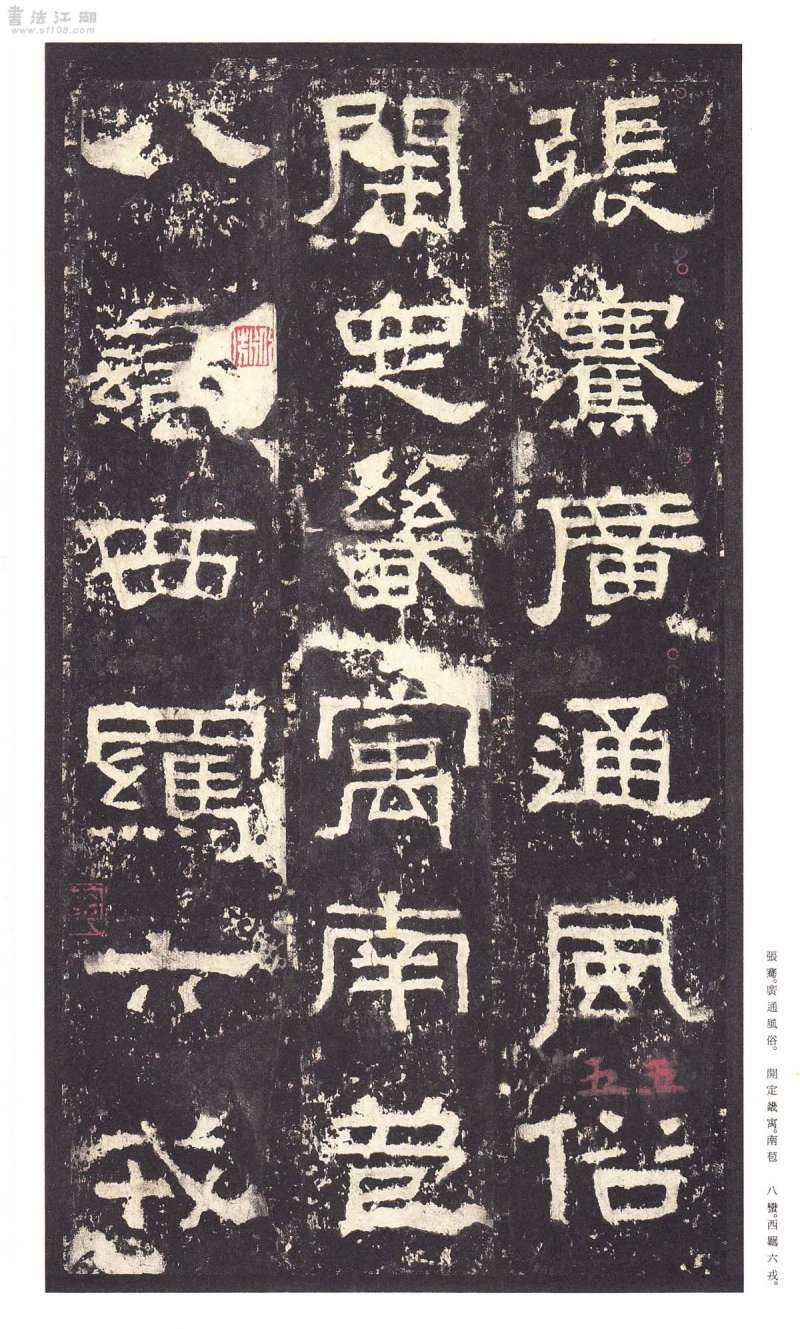 書法江湖
www.af108.com
張騫廣通風俗
開定畿寓南苞
八蠻西羈六戎
五五
張騫。廣通風俗。 開定畿寓。南苞 八蠻。西羈六戎。